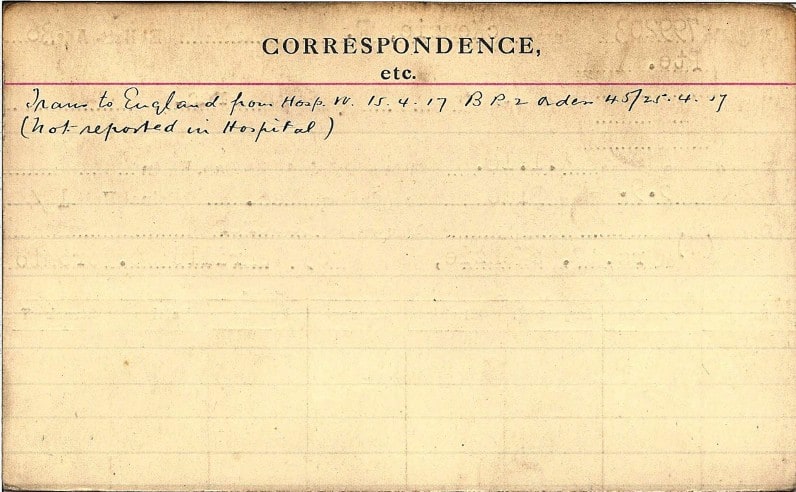 CORRESPONDENCE,
etc.
Trans to England from Hosp. W. 15.4.17 B P 2 Order 45/25.4.17
(Not reported in Hospital)